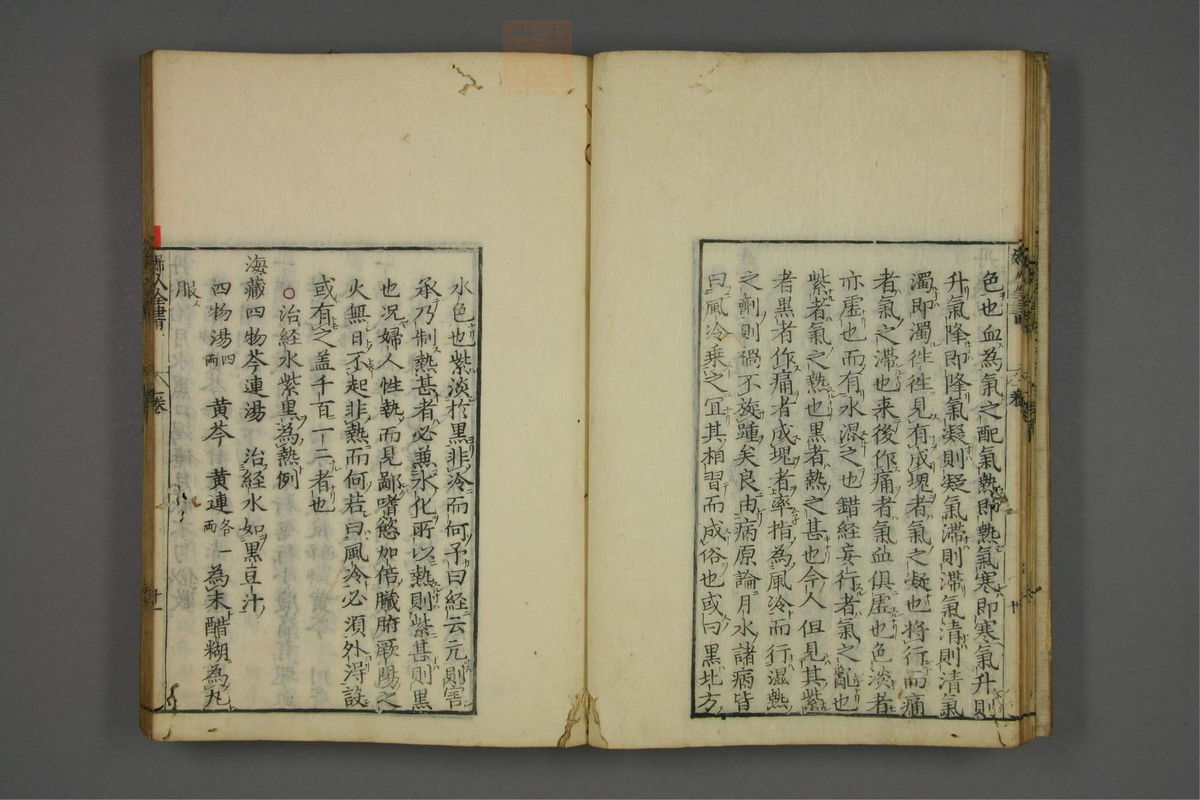 色也血為氣之配氣熱即熱氣寒即寒氣升則
升氣降即降氣凝則凝氣滯則滯氣清則清氣
濁即濁徃徃見有成塊者氣之凝也將行而痛
者氣之滯也来後作痛者氣血俱虚也色淡者
亦虚也而有水混之也錯経妄行者氣之亂也
紫者氣之熱也黒者熱之甚也今人但見其紫
者黒者作痛者成塊者率指為風冷而行温熱
之劑則禍不旋踵矣良由病原論月水諸病皆
曰風冷乗之冝其相習而成俗也或曰黒北方
水色也紫淡於黒非冷而何予曰経云亢則害
承乃制熱甚者必兼水化所以熱則紫甚則黒
也况婦人性熱而見鄙嗜慾加倍臟腑厥陽之
火無日不起非熱而何若曰風冷必須外得設
或有之盖千百一二者也
○治経水紫黒為熱例
海藏四物芩連湯 治経水如黒豆汁
四物湯四兩 黄芩 黄連各一兩 為末醋糊為丸
服
婦人全書 卷 廿一